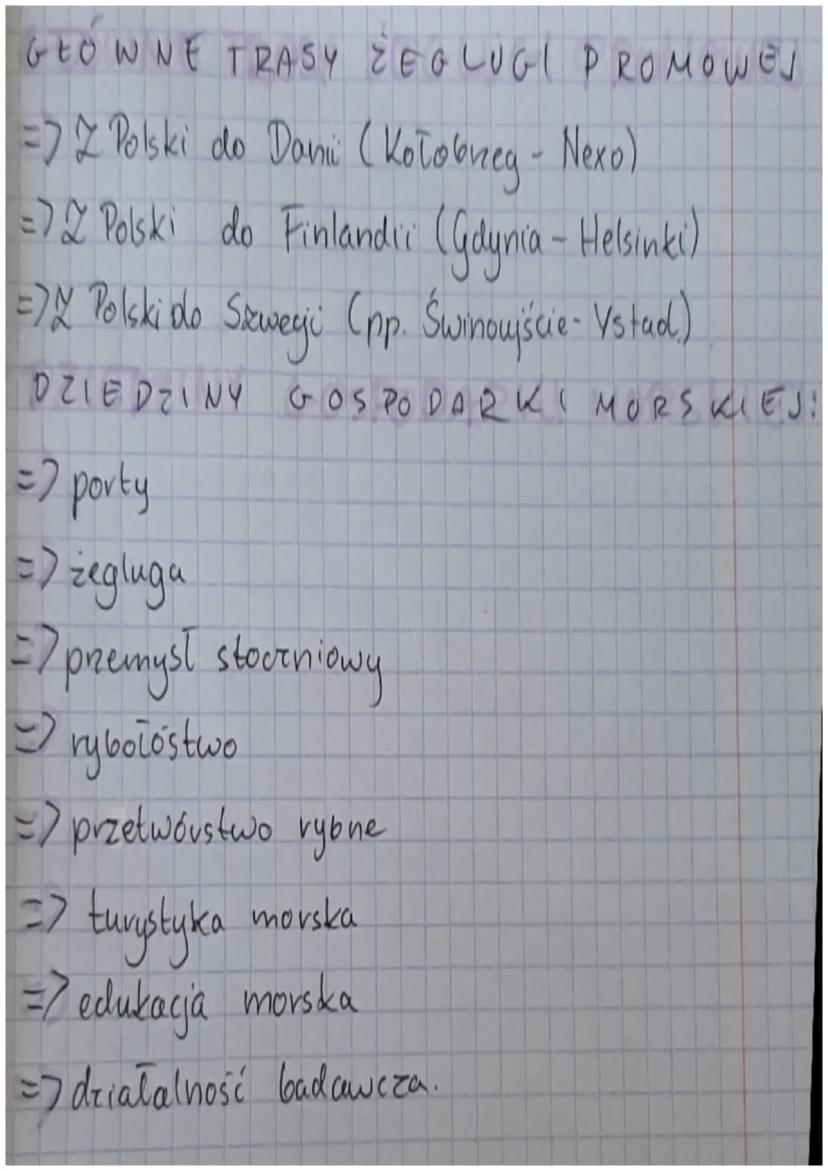 GŁÓWNE TRASY ŻEGLUGI PROMOWEJ
=> Z Polski do Danii (Kołobrzeg - Nexo)
=> Z Polski do Finlandii (Gdynia - Helsinki)
=> Z Polski do Szwecji (np. Świnoujście - Ystad)
DZIEDZINY GOSPODARKI MORSKIEJ:
=> porty
=> żegluga
=> przemysł stoczniowy
=> rybołóstwo
=> przetwórstwo rybne
=> turystyka morska
=> edukacja morska
=> działalność badawcza.